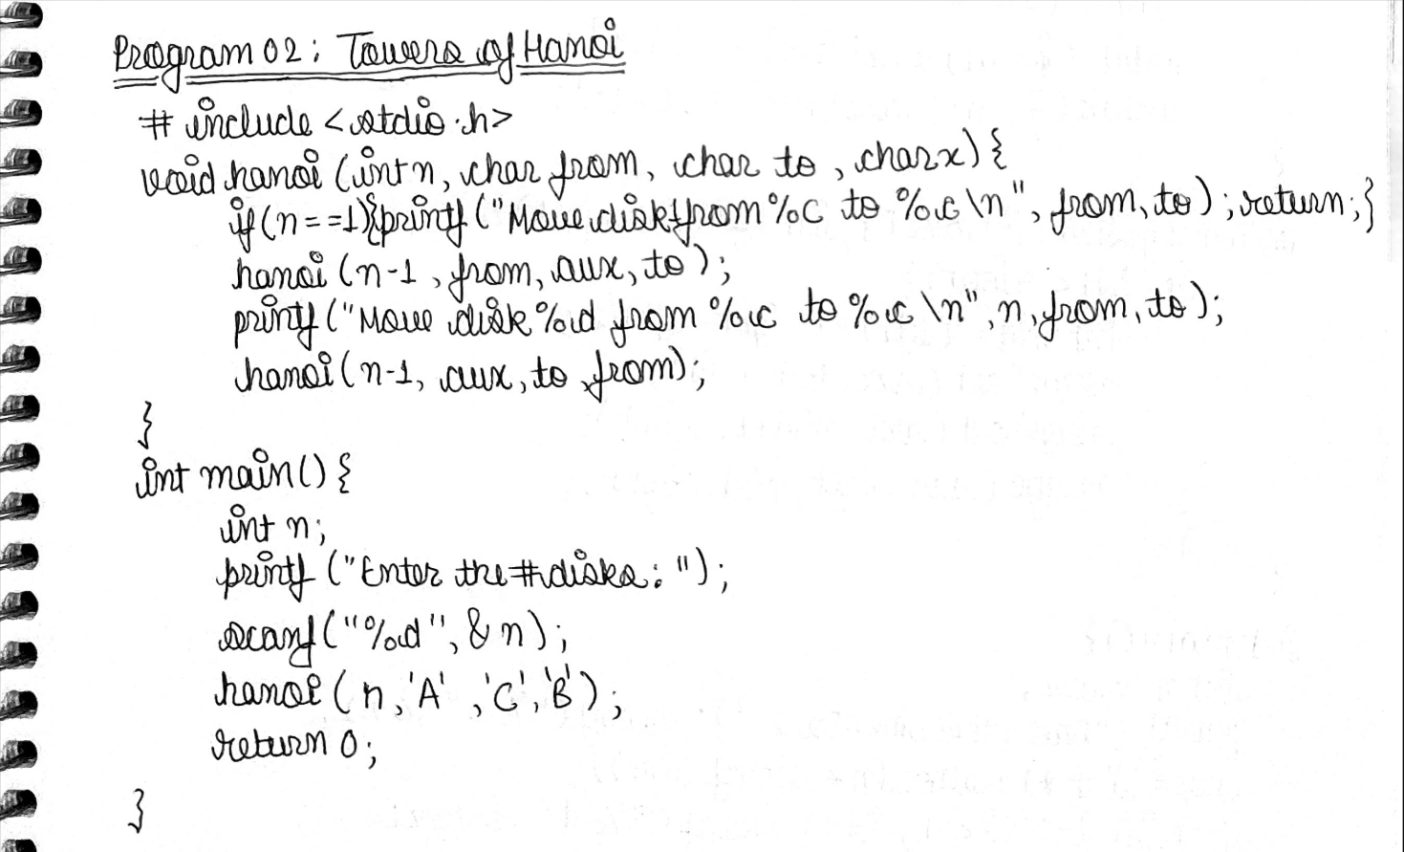 Program 02: Towers of Hanoi
# include <stdio.h>
void hanoi (int n, char from, char to, char x) {
if (n==1){printf ("Move disk from %c to %c \n", from, to); return;}
hanoi (n-1, from, aux, to);
printf ("Move disk %d from %c to %c \n", n, from, to);
hanoi (n-1, aux, to, from);
}
int main() {
int n;
printf ("Enter the # disks: ");
scanf ("%d", & n);
hanoi (n, 'A', 'C', 'B');
return 0;
}